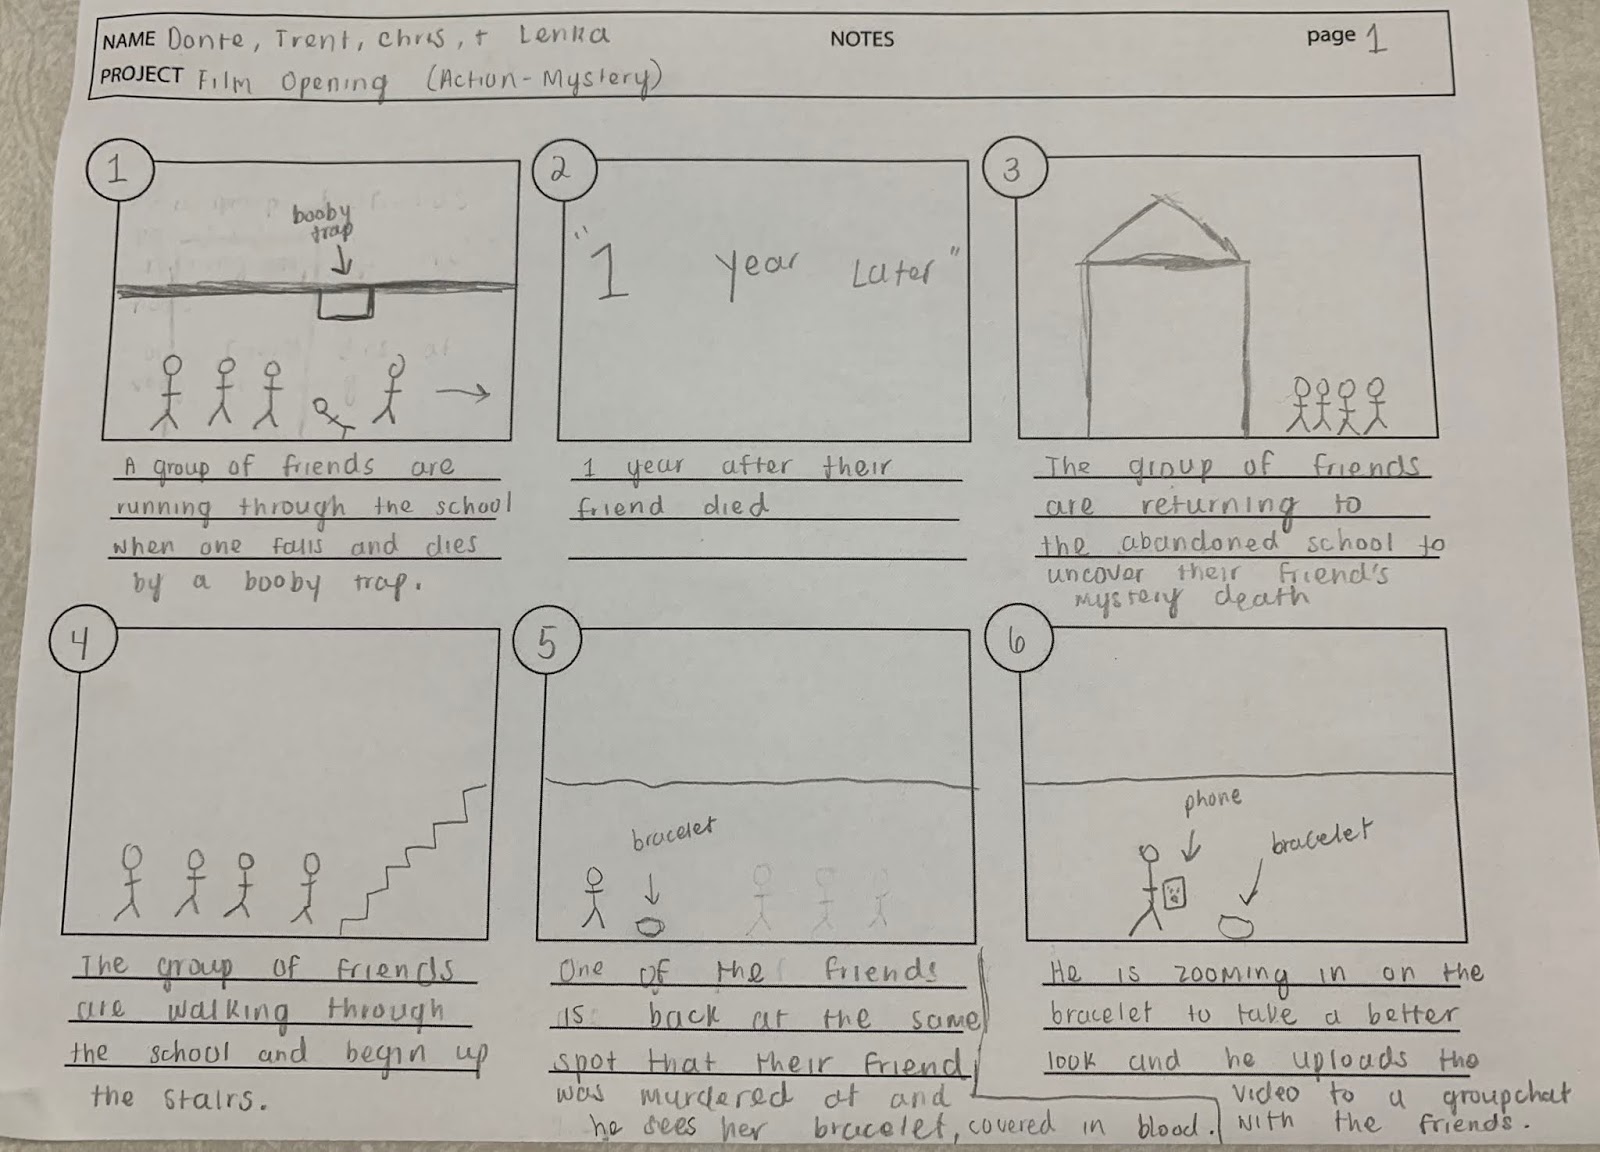 NAME Donte, Trent, Chris, + Lenka
NOTES
page 1
PROJECT Film Opening (Action-Mystery)
1
booby
trap
A group of friends are
running through the school
when one falls and dies
by a booby trap.
2
"1 year Later"
1 year after their
friend died
3
The group of friends
are returning to
the abandoned school to
uncover their friend's
mystery death
4
The group of friends
are walking through
the school and begin up
the stairs.
5
bracelet
One of the friends
is back at the same
spot that their friend
was murdered at and
he sees her bracelet, covered in blood.
6
phone
bracelet
He is zooming in on the
bracelet to take a better
look and he uploads the
video to a groupchat
with the friends.